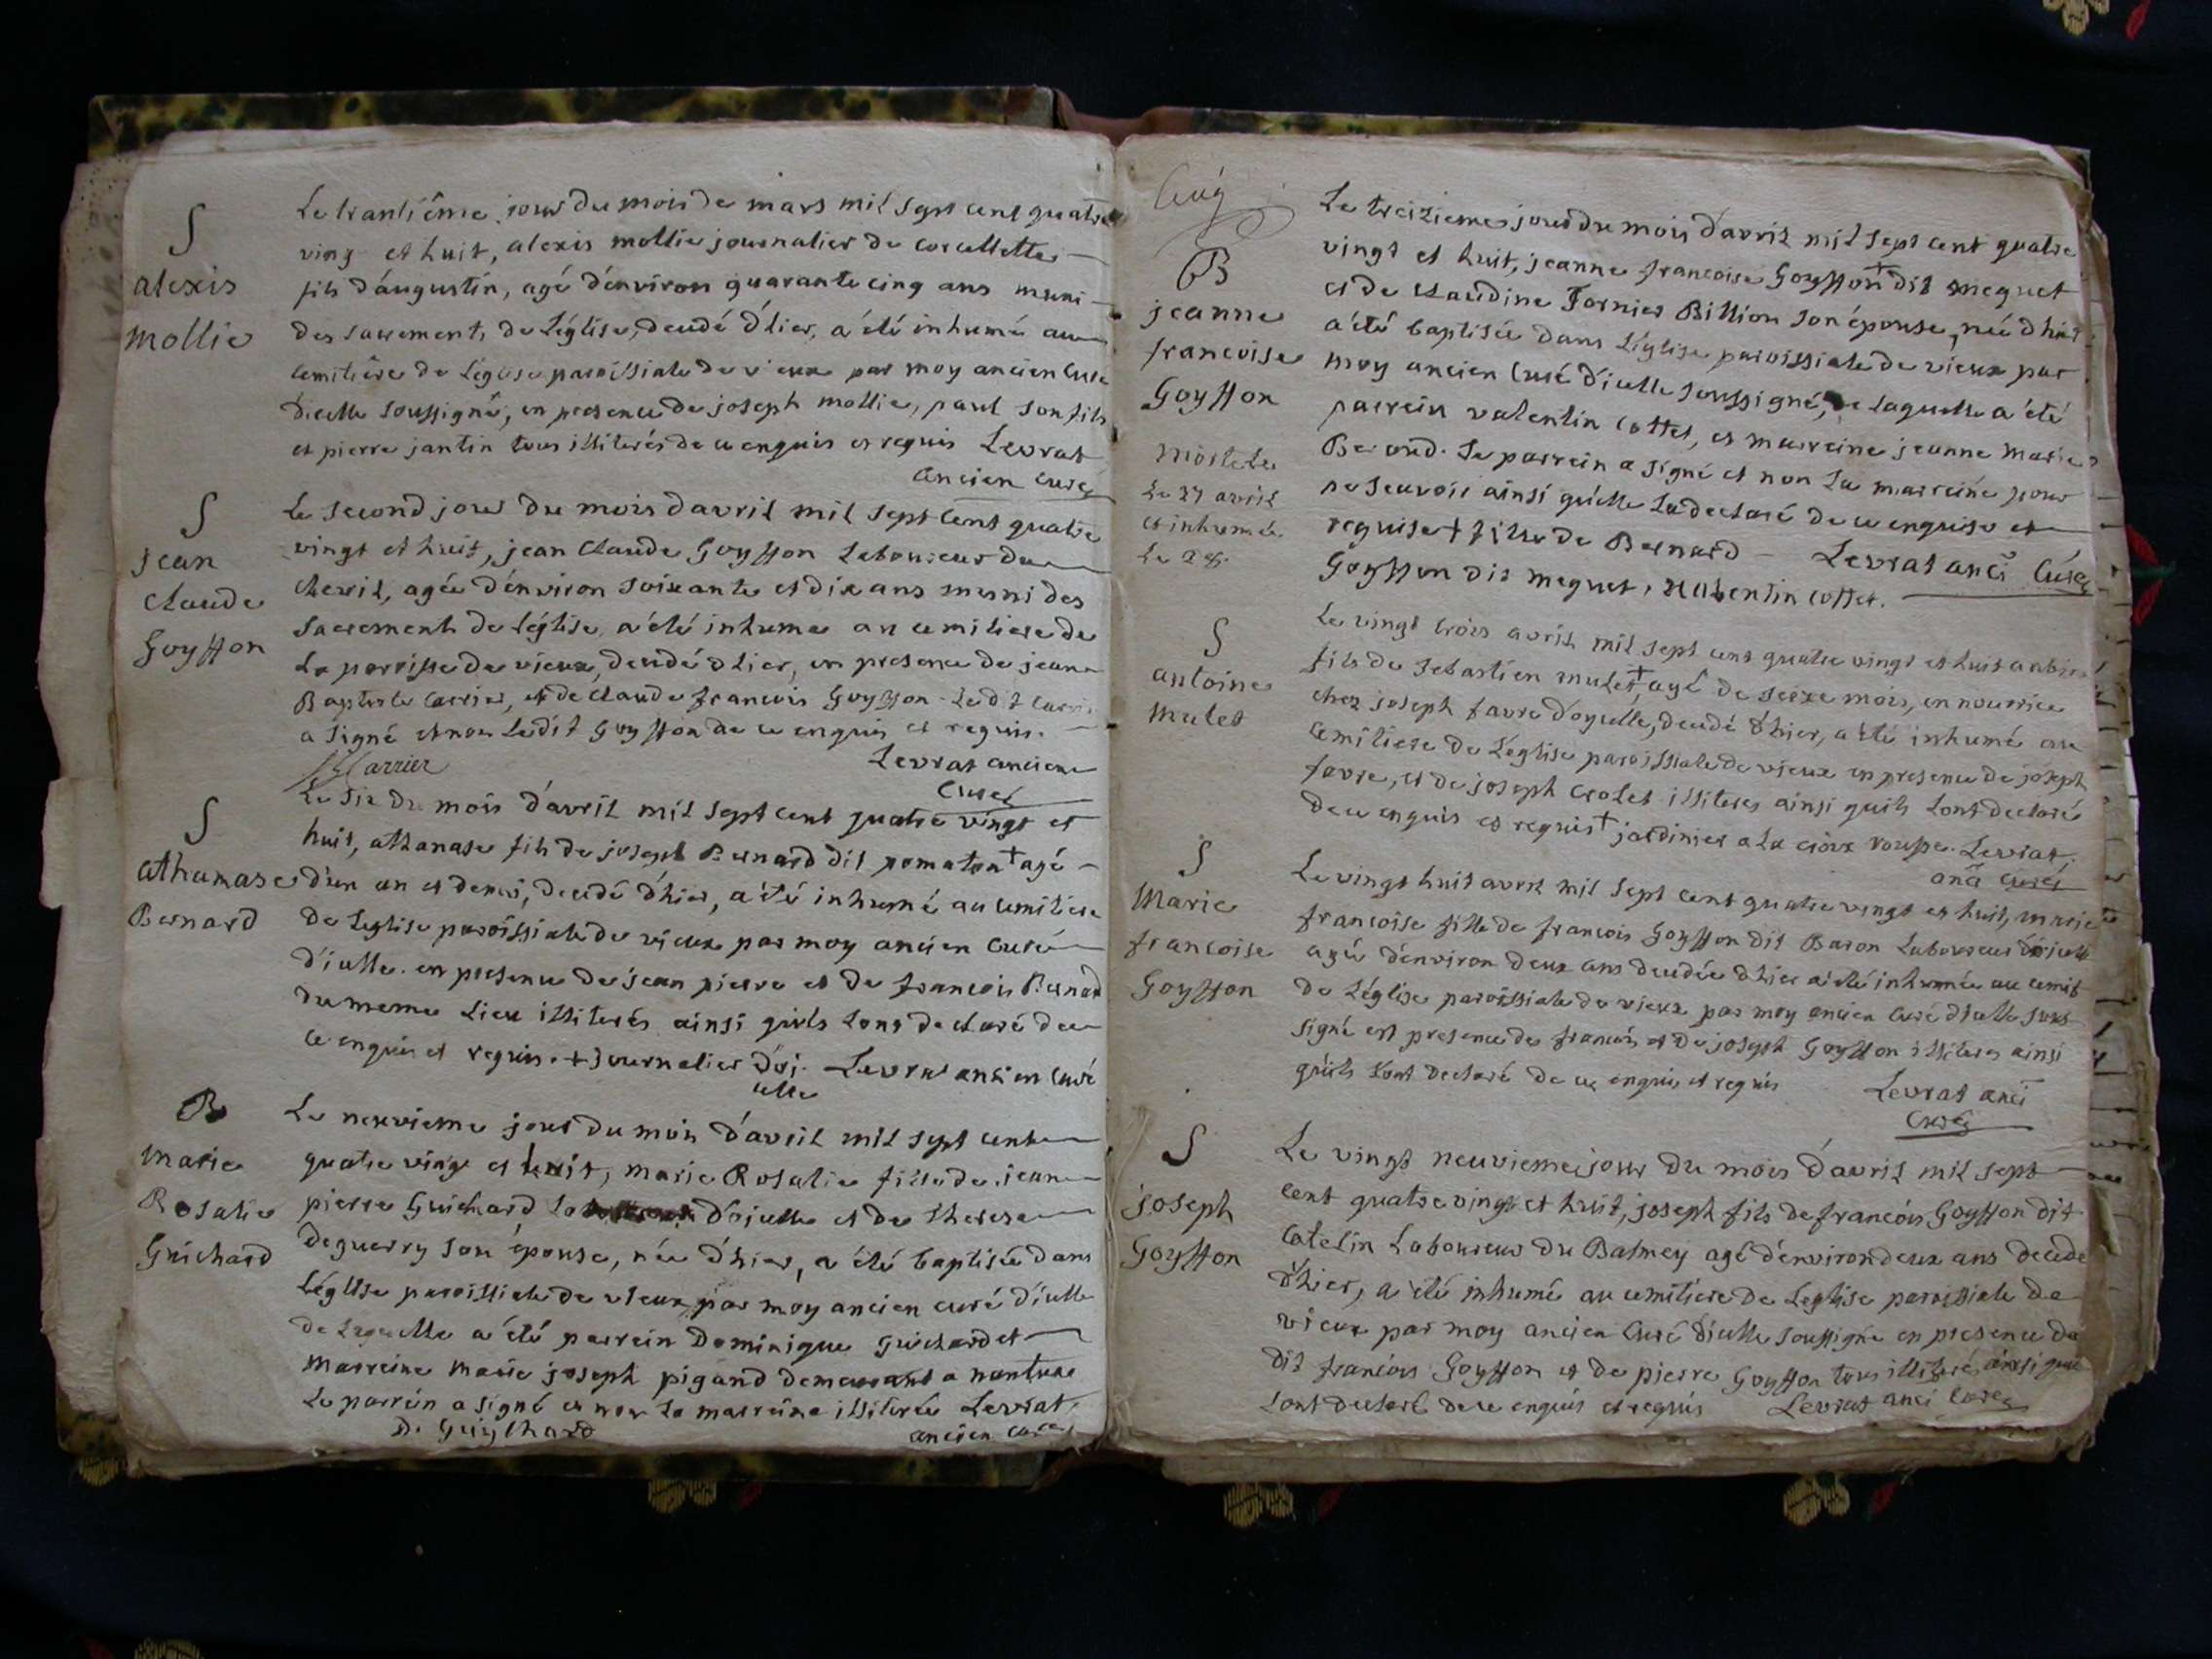 S
alexis
mollie
Le trantiême jour du mois de mars mil sept cent quatre
ving et huit, alexis mollie journalier de corcellettes
fils d'augustin, agé d'environ quarante cinq ans muni
des sacrements de L'église, decedé d'hier, a été inhumé au
cemitiêre de L'église paroissiale de vieux par moy ancien Curé
d'icelle soussigné, en presence de joseph mollie, paul son fils
et pierre jantin tous illiterés de ce enquis et requis Levrat
ancien curé
S
jean
claude
Goyffon
Le second jour du mois d'avril mil sept cent quatre
vingt et huit, jean claude Goyffon Laboureur du
chevril, agée d'environ soixante et dix ans muni des
sacrement de L'église, a été inhume au cemitiere de
La parroisse de vieux, decedé d'hier, en presence de jean
Baptiste Carrier, et de claude francois Goyffon Ledit Carrier
a signé et non Ledit Goyffon de ce enquis et requis.
Carrier
Levrat ancien
Curé
S
athanase
Bernard
Le six du mois d'avril mil sept cent quatre vingt et
huit, athanase fils de joseph Bernard dit pomaton + agé
d'un an et demi, decedé d'hier, a été inhumé au cemitiere
de Leglise paroissiale de vieux par moy ancien Curé
d'icelle. en presence de jean pierre et de francois Bernard
du meme Lieu illiterés ainsi qu'ils Lont declaré de
ce enquis et requis. + journalier d'oj- Levrat ancien Curé
elle
B
marie
Rosalie
Guichard
Le neuvieme jour du mois d'avril mil sept cent
quatre ving et huit, marie Rosalie fille de jean
pierre Guichard d'ojelle et de therese
Deguerry son épouse, née d'hier, a été baptisée dans
L'église paroissiale de vieux par moy ancien curé d'icelle
de Laquelle a été parrein Dominique Guichard et
marreine marie joseph pigand demeurant a nantua
Le parrein a signé et non La marreine illiterée Levrat
D. Guychard
ancien curé
B
jeanne
francoise
Goyffon
morte le
Le 27 avril
et inhumée
Le 28.
Le treizieme jour du mois d'avril mil sept cent quatre
vingt et huit, jeanne francoise Goyffon + dit meguet
et de claudine Fornier Billion son épouse, née d'hier
a été baptisée dans L'église paroissiale de vieux par
moy ancien Curé d'icelle soussigné, de Laquelle a été
parrein valentin cottet, et marreine jeanne marie
Berond. Le parrein a signé et non La marreine pour
ne scavoir ainsi qu'elle La declaré de ce enquise et
requise + fille de Bernard Levrat anci Curé
Goyffon dit meguet, valentin cottet.
S
antoine
mulet
Le vingt trois avril mil sept cent quatre vingt et huit antoine
fils de sebastien mulet +, agé de seize mois, en nourrice
chez joseph favre d'oyelle, decedé d'hier, a été inhumé au
cemitiere de L'église paroissiale de vieux en presence de joseph
favre, et de joseph crolet illiteres ainsi quils Lont declaré
de ce enquis et requis + jardinier a La croix rousse. Levrat.
anci curé
S
Marie
francoise
Goyffon
Le vingt huit avril mil sept cent quatre vingt et huit, marie
francoise fille de francois Goyffon dit Baron Laboureur d'ojelle
agée d'environ deux ans decedée d'hier a été inhumée au cemit
de L'église paroissiale de vieux par moy ancien curé d'icelle sous
signé en presence de francois et de joseph Goyffon illiteres ainsi
qu'ils Lont declaré de ce enquis et requis
Levrat anci
Curé
S
joseph
Goyffon
Le vingt neuvieme jour du mois d'avril mil sept
cent quatre vingt et huit, joseph fils de francois Goyffon dit
Catelin Laboureur du Balmey agé d'environ deux ans decede
d'hier, a été inhumé au cemitiere de Leglise paroissiale de
vieux par moy ancien Curé d'icelle soussigné en presence du
dit francois Goyffon et de pierre Goyffon tous illiterés ainsi quils
Lont declaré de ce enquis et requis Levrat anci Curé